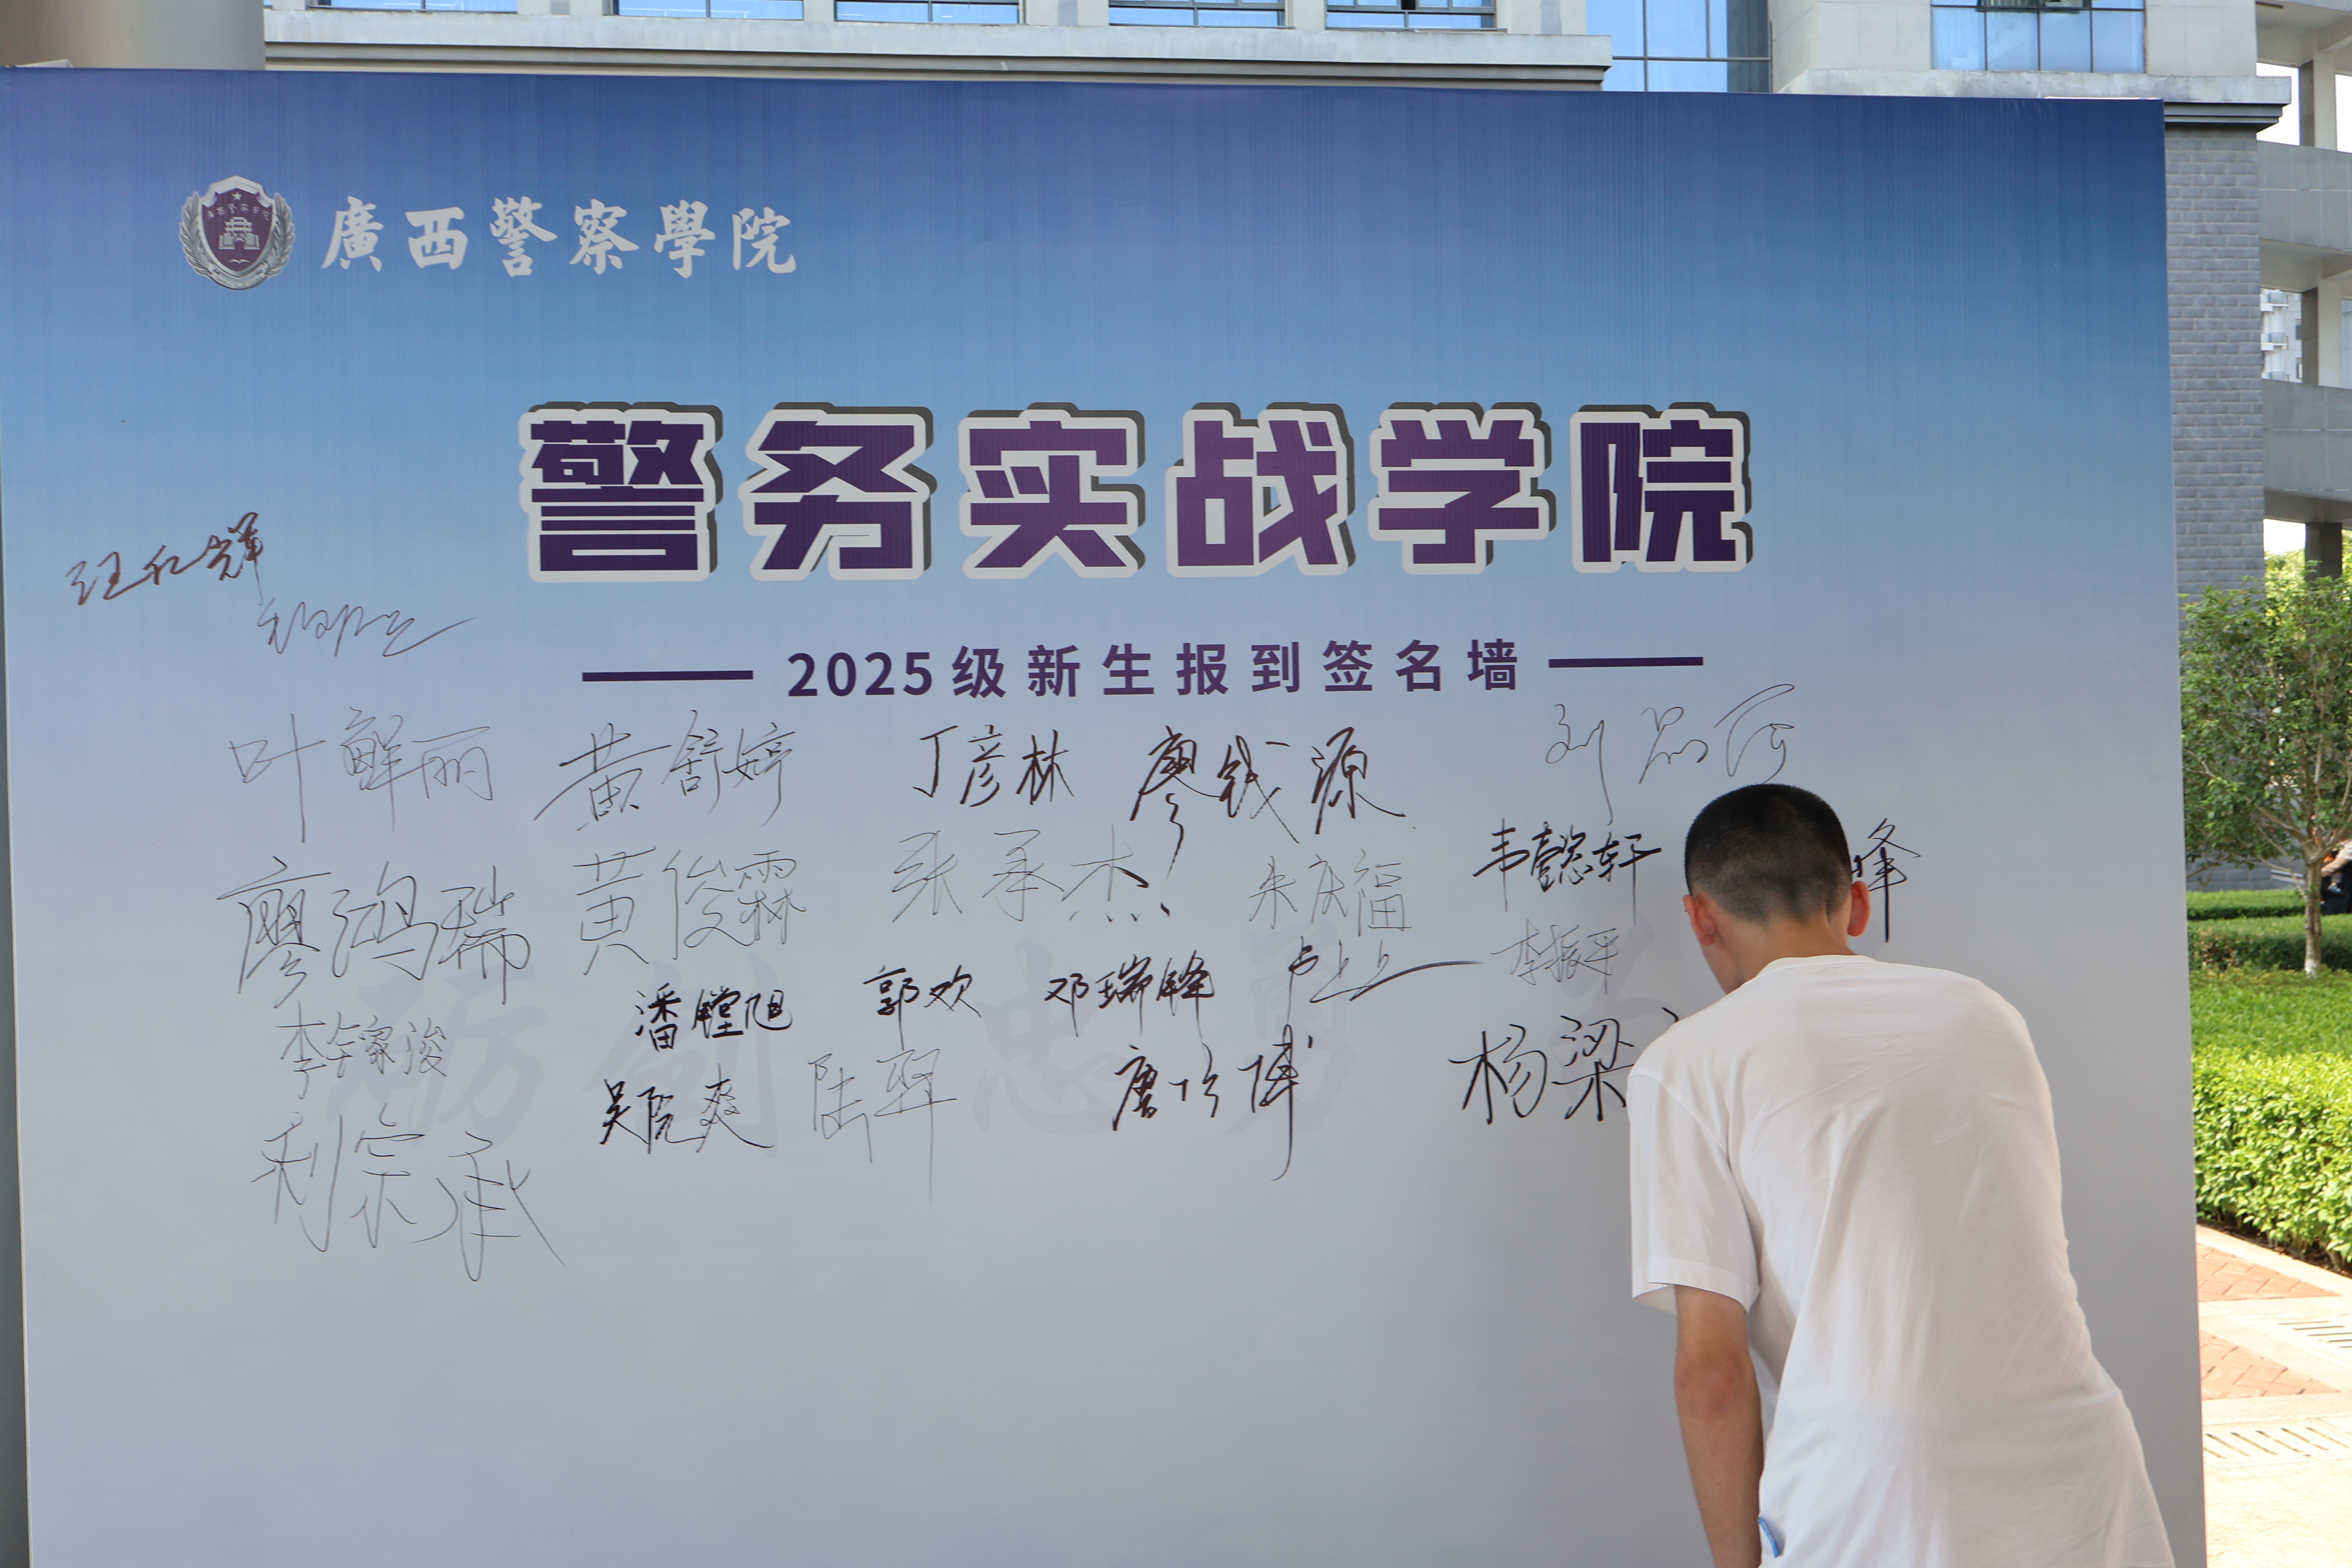 廣西警察學院
警务实战学院
2025级新生报到签名墙
汪仁辉
叶鲜丽 黄舒婷 丁彦林 廖钱源
廖鸿瑞 黄俊霖 张承杰 朱庆福 韦懿轩 峰
李家浚 潘瞠旭 郭欢 邓瑞锋 李振平
利宗承 吴院爽 陆 唐 博 杨梁
忠勇